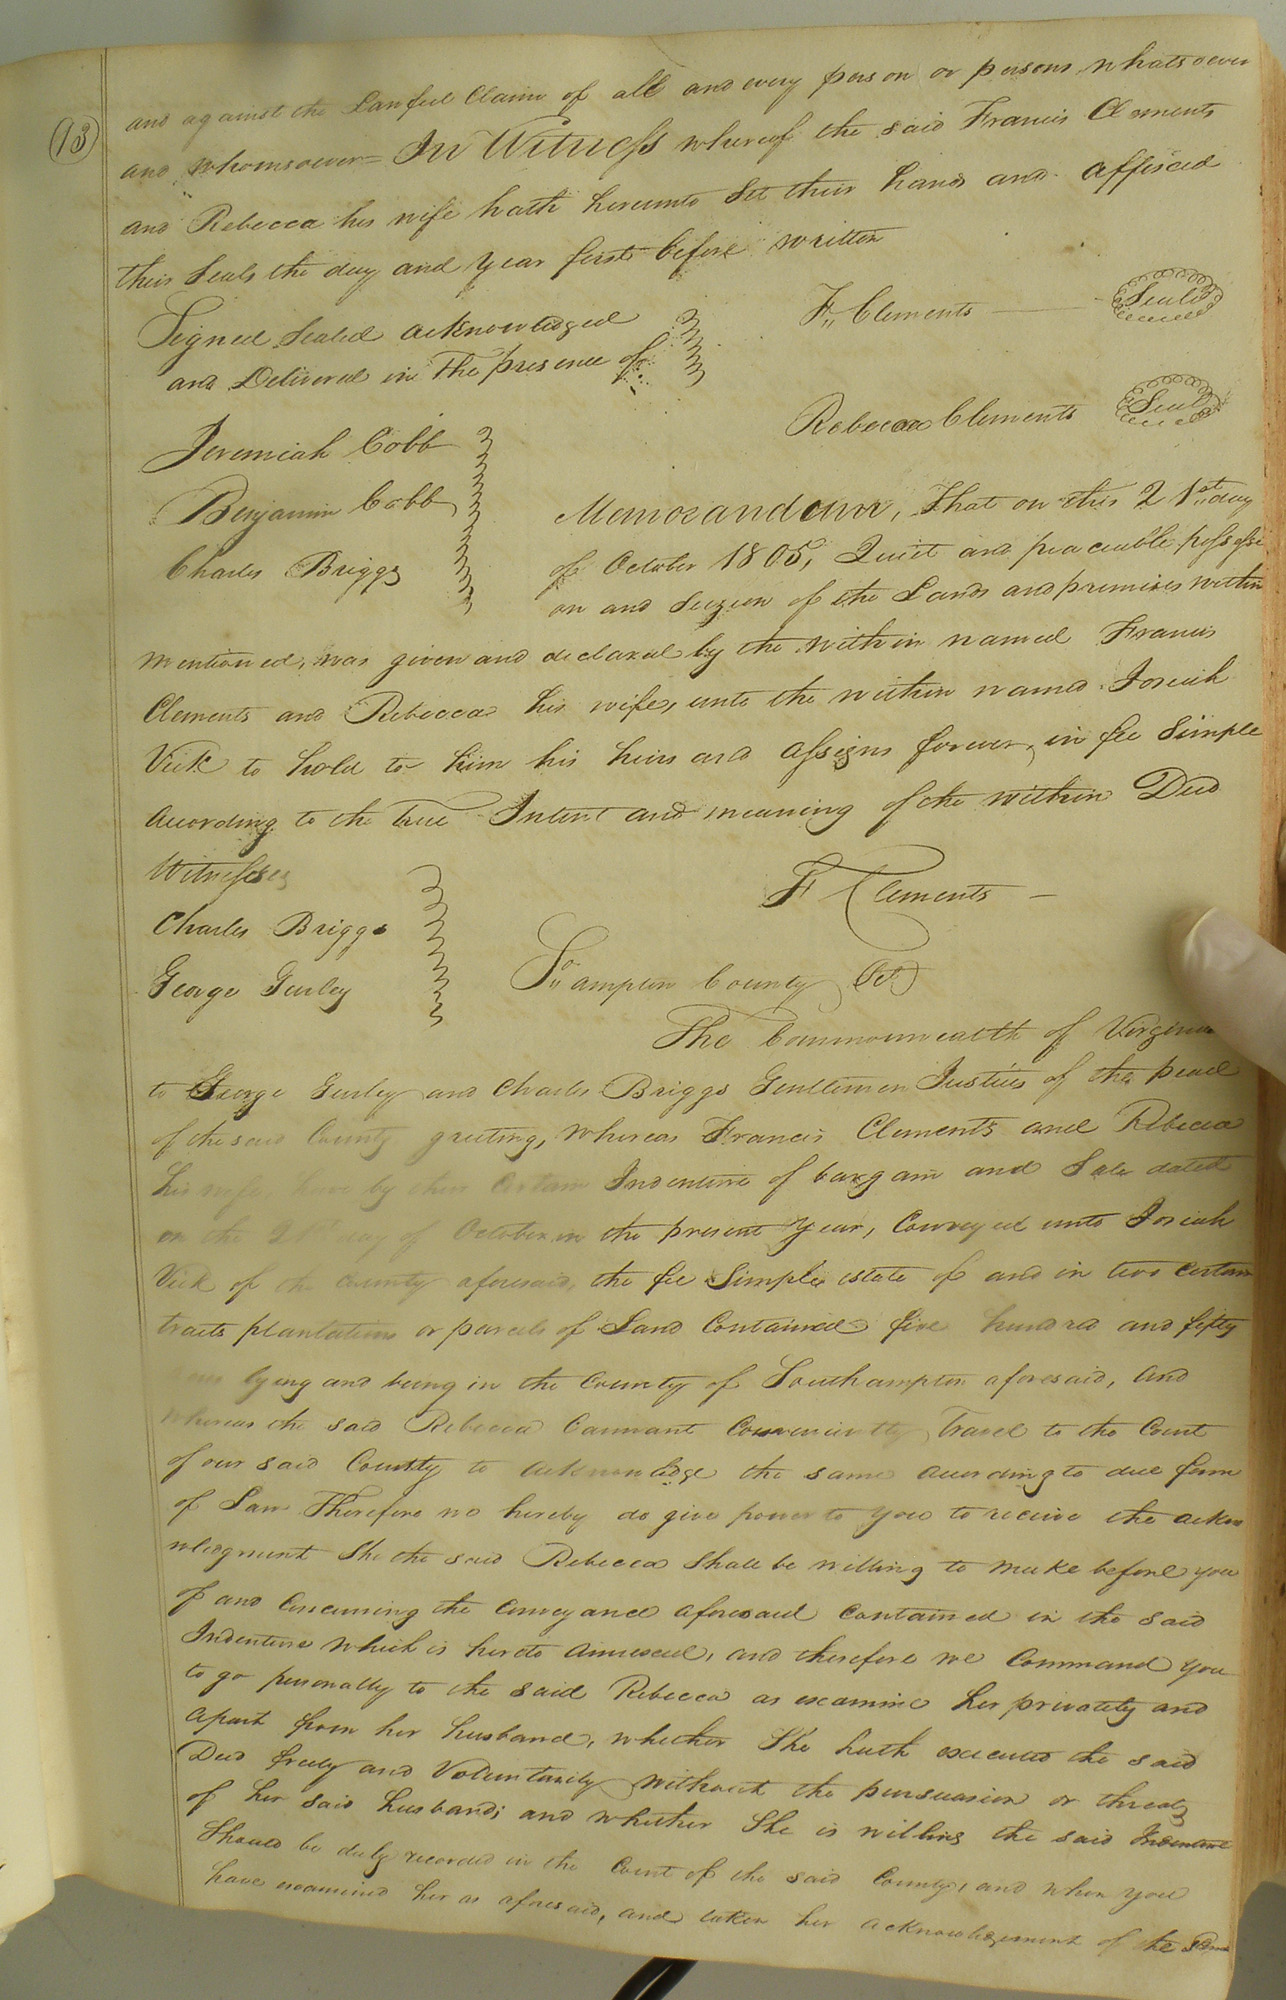 13
and against the Lawful Claim of all and every person or persons whatsoever
and whomsoever = In Witness whereof the said Francis Clements
and Rebecca his wife hath hereunto Set their hands and affixed
their Seals the day and year first before written
Signed Sealed acknowledged
and Delivered in The presence of
F,, Clements
Seal
Rebecca Clements
Seal
Jeremiah Cobb
Benjamin Cobb
Charles Briggs
Memorandum, That on this 21st,, day
of October 1805, Quiet and peaceable possessi
on and Seizen of the Lands and premises within
mentioned, was given and declared by the within named Francis
Clements and Rebecca his wife, unto the within named Josiah
Vick to hold to him his heirs and assigns forever, in fee Simple
according to the true Intent and meaning of the within Deed
Witnesses
Charles Briggs
George Gurley
F Clements
So,,ampton County Sct
The Commonwealth of Virginia
to George Gurley and Charles Briggs Gentlemen Justices of the peace
of the said County greeting, Whereas Francis Clements and Rebecca
his wife, have by their Certain Indenture of bargain and Sale dated
on the 21st day of October in the present year, Conveyed unto Josiah
Vick of the County aforesaid, the fee Simple estate of and in two certain
tracts plantations or parcels of Land Contained five hundred and fifty
lying and being in the County of Southampton aforesaid, and
whereas the said Rebecca Cannant Conveniently Travel to the Court
of our said County to acknowledge the same according to due form
of Law Therefore we hereby do give power to you to receive the ackno
wledgment She the said Rebecca Shall be willing to make before you
of and Concerning the Conveyance aforesaid contained in the said
Indenture which is hereto annexed, and therefore we Command you
to go personally to the said Rebecca as examine her privately and
apart from her husband, whether She hath executed the said
Deed freely and Voluntarily without the pursuasion or threats
of her said husband; and whether She is willing the said Indenture
Should be duly recorded in the Court of the said County, and when you
have examined her as aforesaid, and taken her acknowledgement of the Same